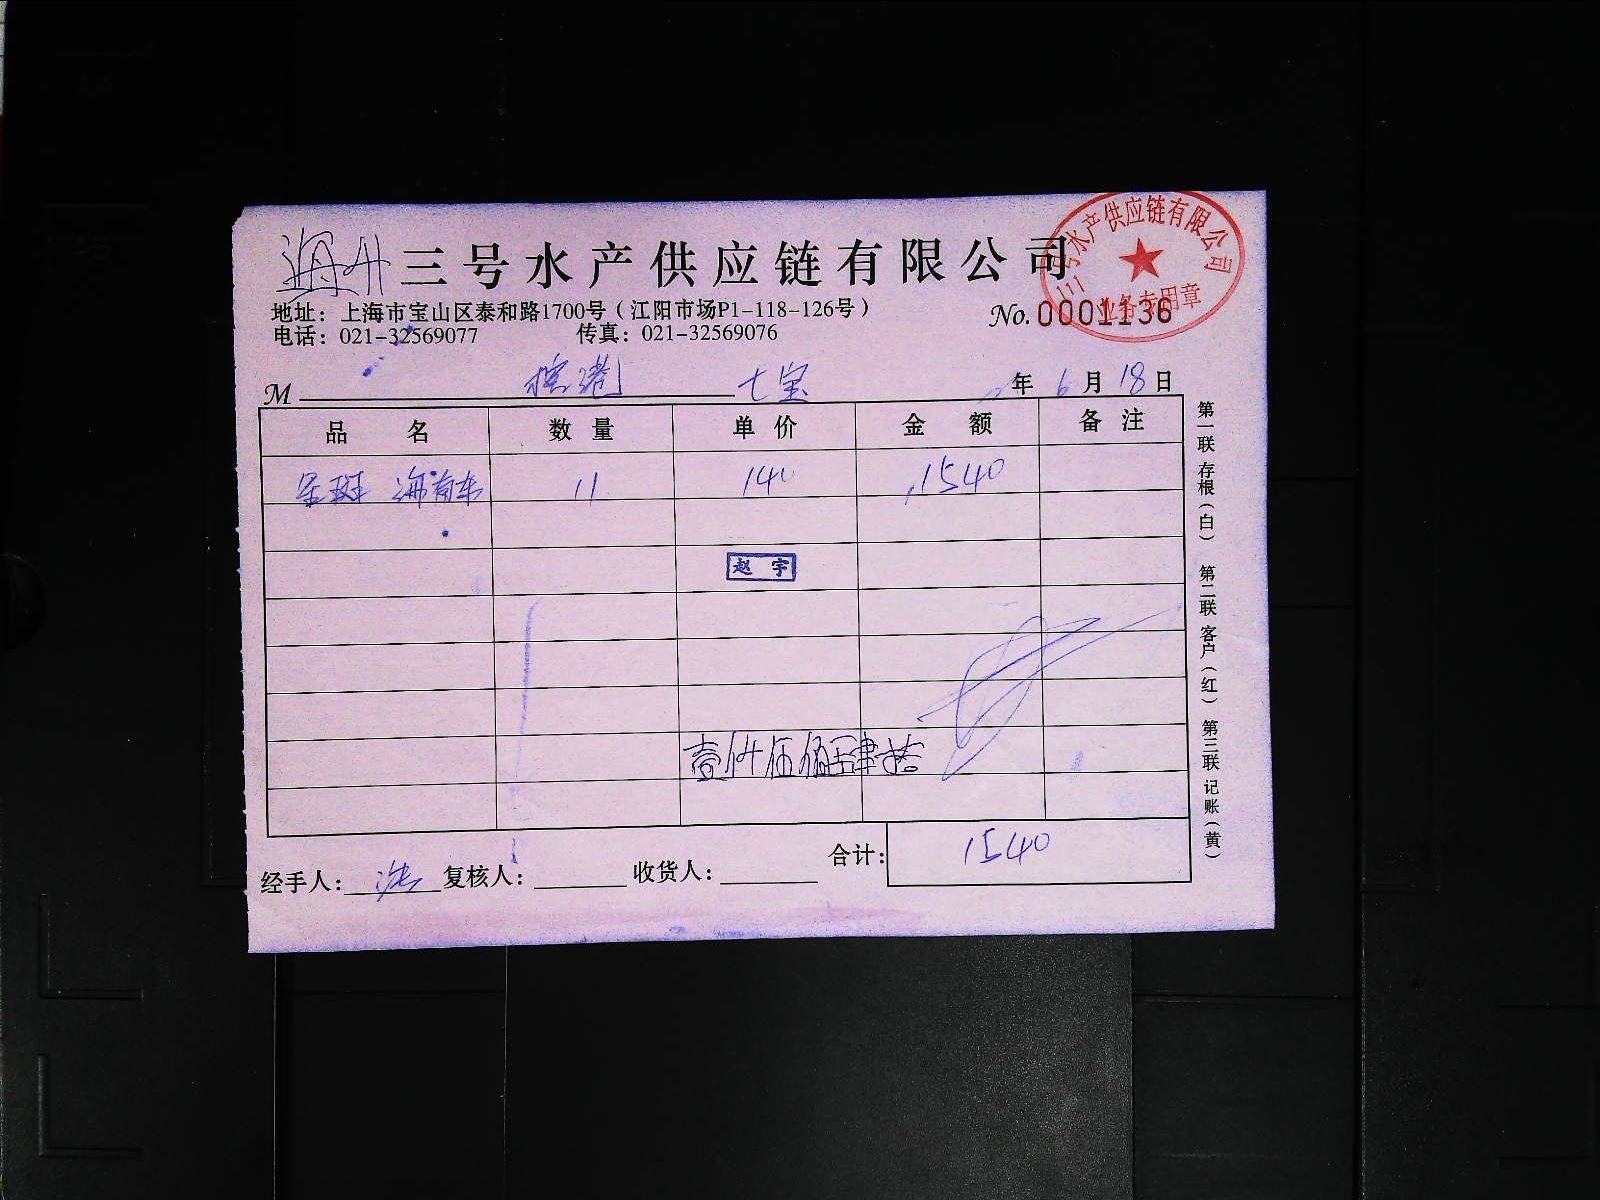 三号水产供应链有限公司
三号水产供应链有限公司
业务专用章
地址：上海市宝山区泰和路1700号（江阳市场P1-118-126号）
电话：021-32569077 传真：021-32569076
No. 0001136
M 七宝 年 6 月 18 日
品 名 数 量 单 价 金 额 备 注
星斑 11 140 1540
赵 宇
壹仟伍佰肆拾
合计： 1540
经手人： 复核人： 收货人：
第一联 存根（白） 第二联 客户（红） 第三联 记账（黄）